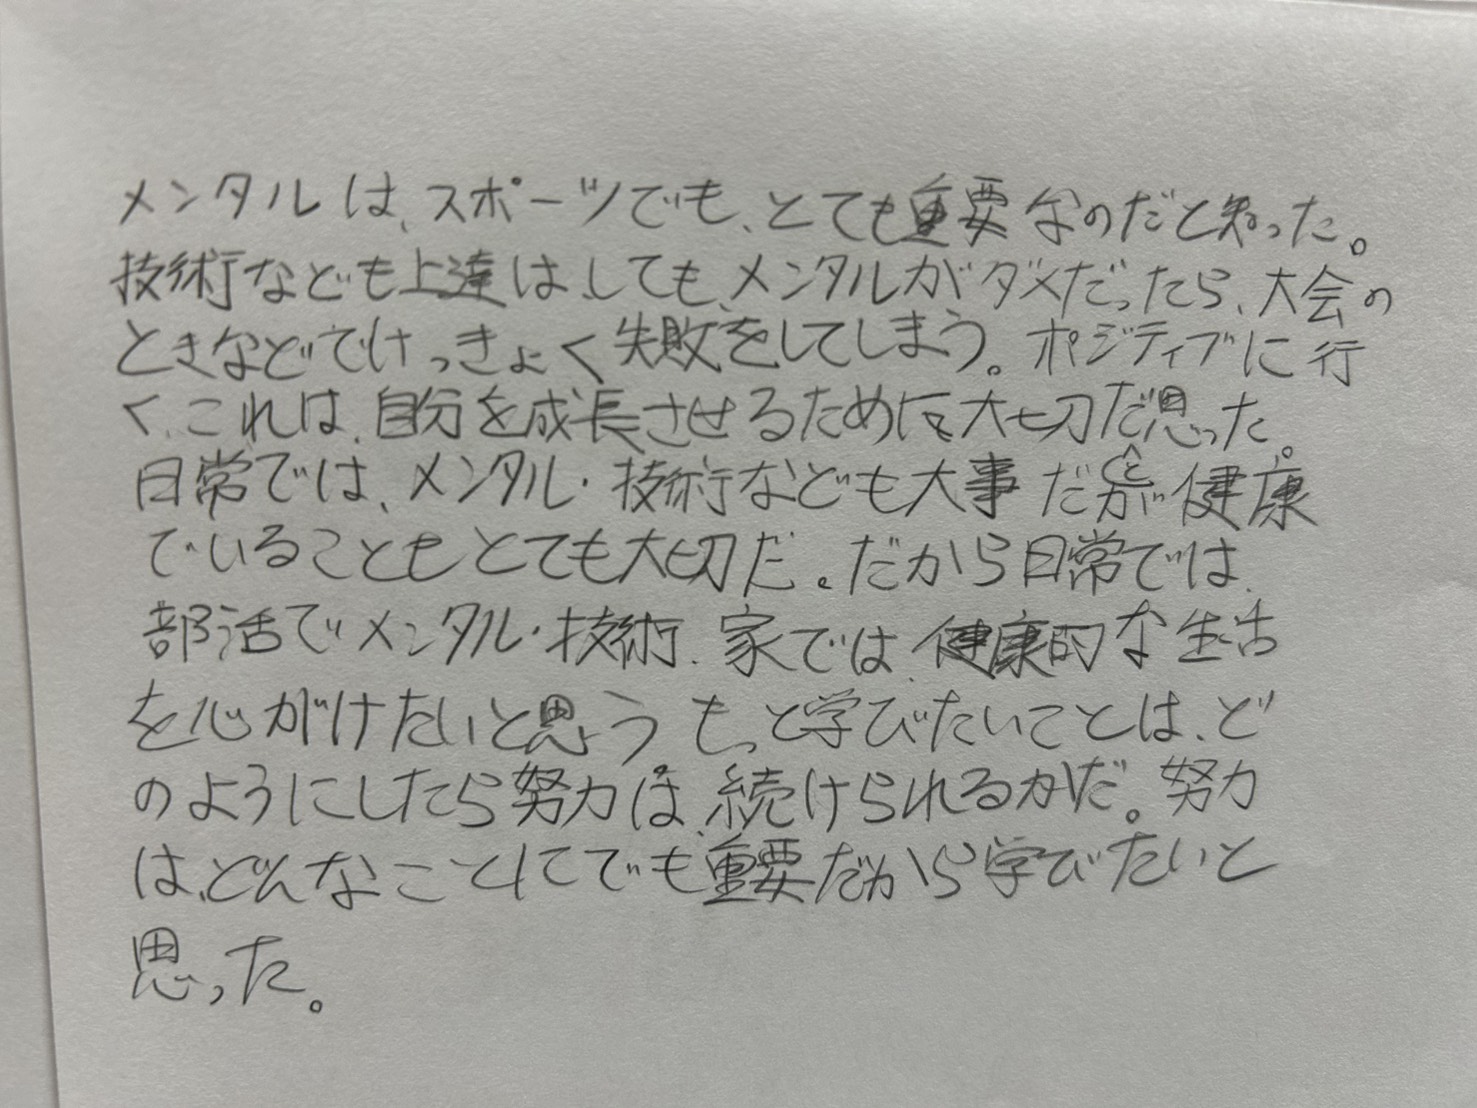 メンタルは、スポーツでも、とても重要なのだと知った。
技術なども上達は、しても、メンタルがダメだったら、大会の
ときなどでけっきょく失敗をしてしまう。ポジティブに行
く、これは、自分を成長させるために大切だ思った。
日常では、メンタル・技術なども大事だとが健康
でいることもとても大切だ。だから日常では、
部活でメンタル・技術、家では、健康的な生活
を心がけたいと思う。もっと学びたいことは、ど
のようにしたら努力は、続けられるかだ。努力
は、どんなことにでも重要だから学びたいと
思った。